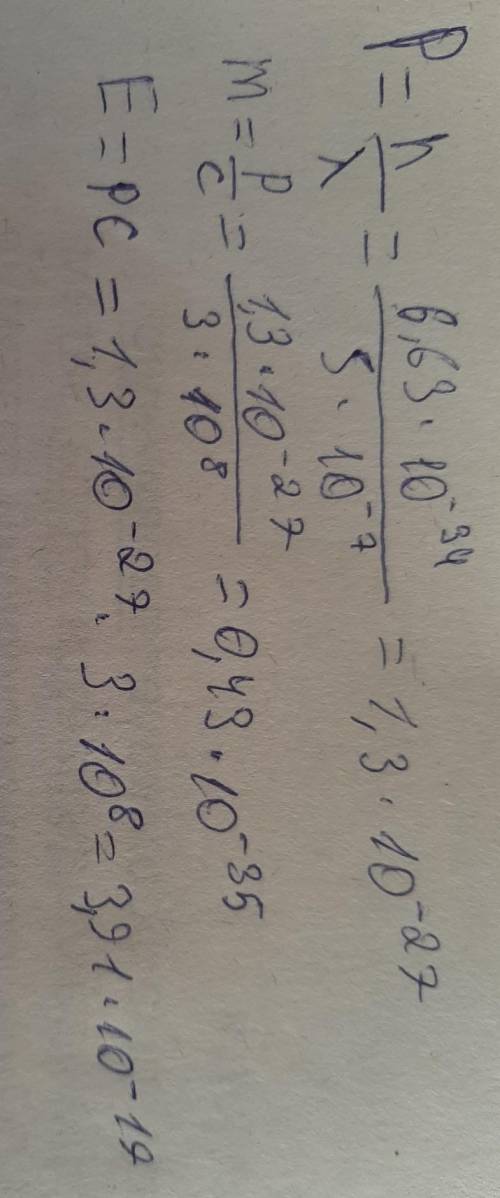 P = h/λ = 6,63 · 10^-34 / 5 · 10^-7 = 1,3 · 10^-27
m = p/c = 1,3 · 10^-27 / 3 · 10^8 = 0,43 · 10^-35
E = pc = 1,3 · 10^-27 · 3 · 10^8 = 3,91 · 10^-19